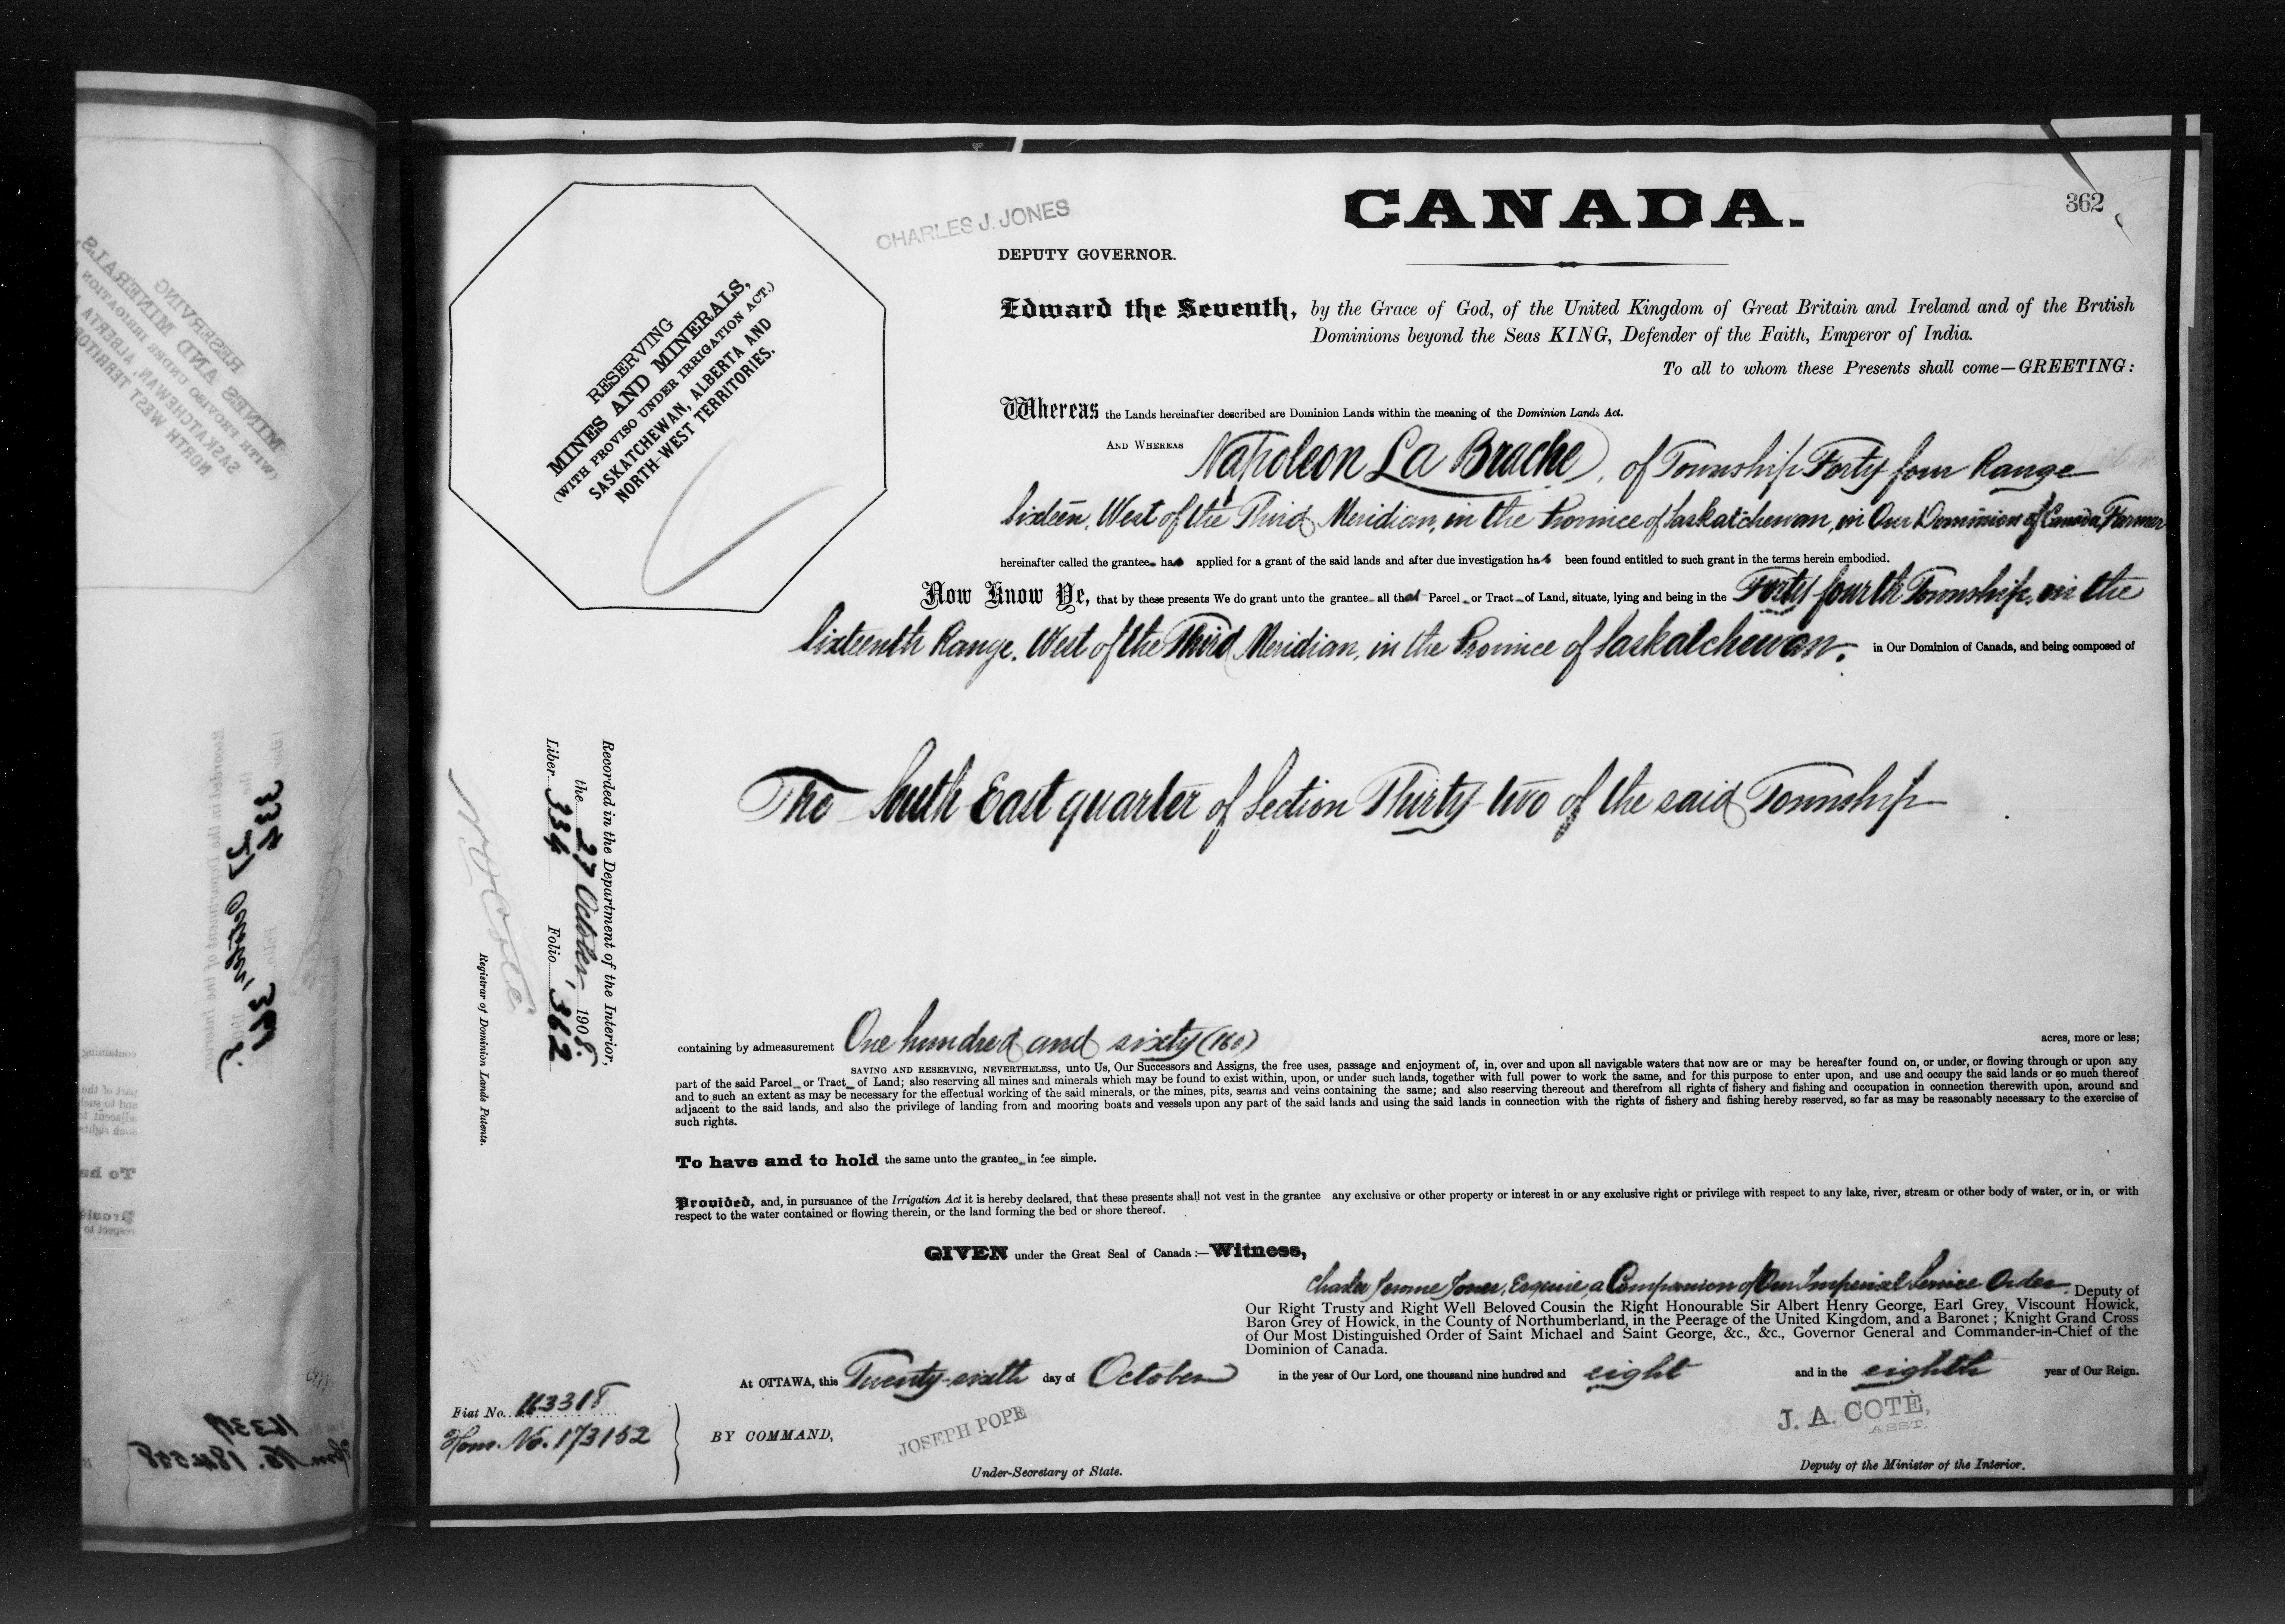 CANADA.
362
CHARLES J. JONES
DEPUTY GOVERNOR.
RESERVING
MINES AND MINERALS,
(WITH PROVISO UNDER IRRIGATION ACT.)
SASKATCHEWAN, ALBERTA AND
NORTH-WEST TERRITORIES.
Edward the Seventh, by the Grace of God, of the United Kingdom of Great Britain and Ireland and of the British
Dominions beyond the Seas KING, Defender of the Faith, Emperor of India.
To all to whom these Presents shall come—GREETING:
Whereas the Lands hereinafter described are Dominion Lands within the meaning of the Dominion Lands Act.
AND WHEREAS Napoleon La Brache, of Township Forty four Range
Sixteen, West of the Third Meridian, in the Province of Saskatchewan, in Our Dominion of Canada, Farmer
hereinafter called the grantee has applied for a grant of the said lands and after due investigation has been found entitled to such grant in the terms herein embodied.
Now Know Ye, that by these presents We do grant unto the grantee all that Parcel or Tract of Land, situate, lying and being in the Forty fourth Township, in the
Sixteenth Range, West of the Third Meridian, in the Province of Saskatchewan. in Our Dominion of Canada, and being composed of
The South East quarter of Section Thirty-two of the said Township
Recorded in the Department of the Interior,
the 27 October 1908.
Liber 334 Folio 362
N O Coté
Registrar of Dominion Lands Patents.
containing by admeasurement One hundred and sixty (160) acres, more or less;
SAVING AND RESERVING, NEVERTHELESS, unto Us, Our Successors and Assigns, the free uses, passage and enjoyment of, in, over and upon all navigable waters that now are or may be hereafter found on, or under, or flowing through or upon any
part of the said Parcel or Tract of Land; also reserving all mines and minerals which may be found to exist within, upon, or under such lands, together with full power to work the same, and for this purpose to enter upon, and use and occupy the said lands or so much thereof
and to such an extent as may be necessary for the effectual working of the said minerals, or the mines, pits, seams and veins containing the same; and also reserving thereout and therefrom all rights of fishery and fishing and occupation in connection therewith upon, around and
adjacent to the said lands, and also the privilege of landing from and mooring boats and vessels upon any part of the said lands and using the said lands in connection with the rights of fishery and fishing hereby reserved, so far as may be reasonably necessary to the exercise of
such rights.
To have and to hold the same unto the grantee in fee simple.
Provided, and, in pursuance of the Irrigation Act it is hereby declared, that these presents shall not vest in the grantee any exclusive or other property or interest in or any exclusive right or privilege with respect to any lake, river, stream or other body of water, or in, or with
respect to the water contained or flowing therein, or the land forming the bed or shore thereof.
GIVEN under the Great Seal of Canada:—Witness,
Charles Jerome Jones, Esquire, a Companion of Our Imperial Service Order Deputy of
Our Right Trusty and Right Well Beloved Cousin the Right Honourable Sir Albert Henry George, Earl Grey, Viscount Howick,
Baron Grey of Howick, in the County of Northumberland, in the Peerage of the United Kingdom, and a Baronet; Knight Grand Cross
of Our Most Distinguished Order of Saint Michael and Saint George, &c., &c., Governor General and Commander-in-Chief of the
Dominion of Canada.
At OTTAWA, this Twenty-sixth day of October in the year of Our Lord, one thousand nine hundred and eight and in the eighth year of Our Reign.
Fiat No. 163318
Hom. No. 173152
BY COMMAND,
JOSEPH POPE
Under-Secretary of State.
J. A. COTÈ,
ASST.
Deputy of the Minister of the Interior.